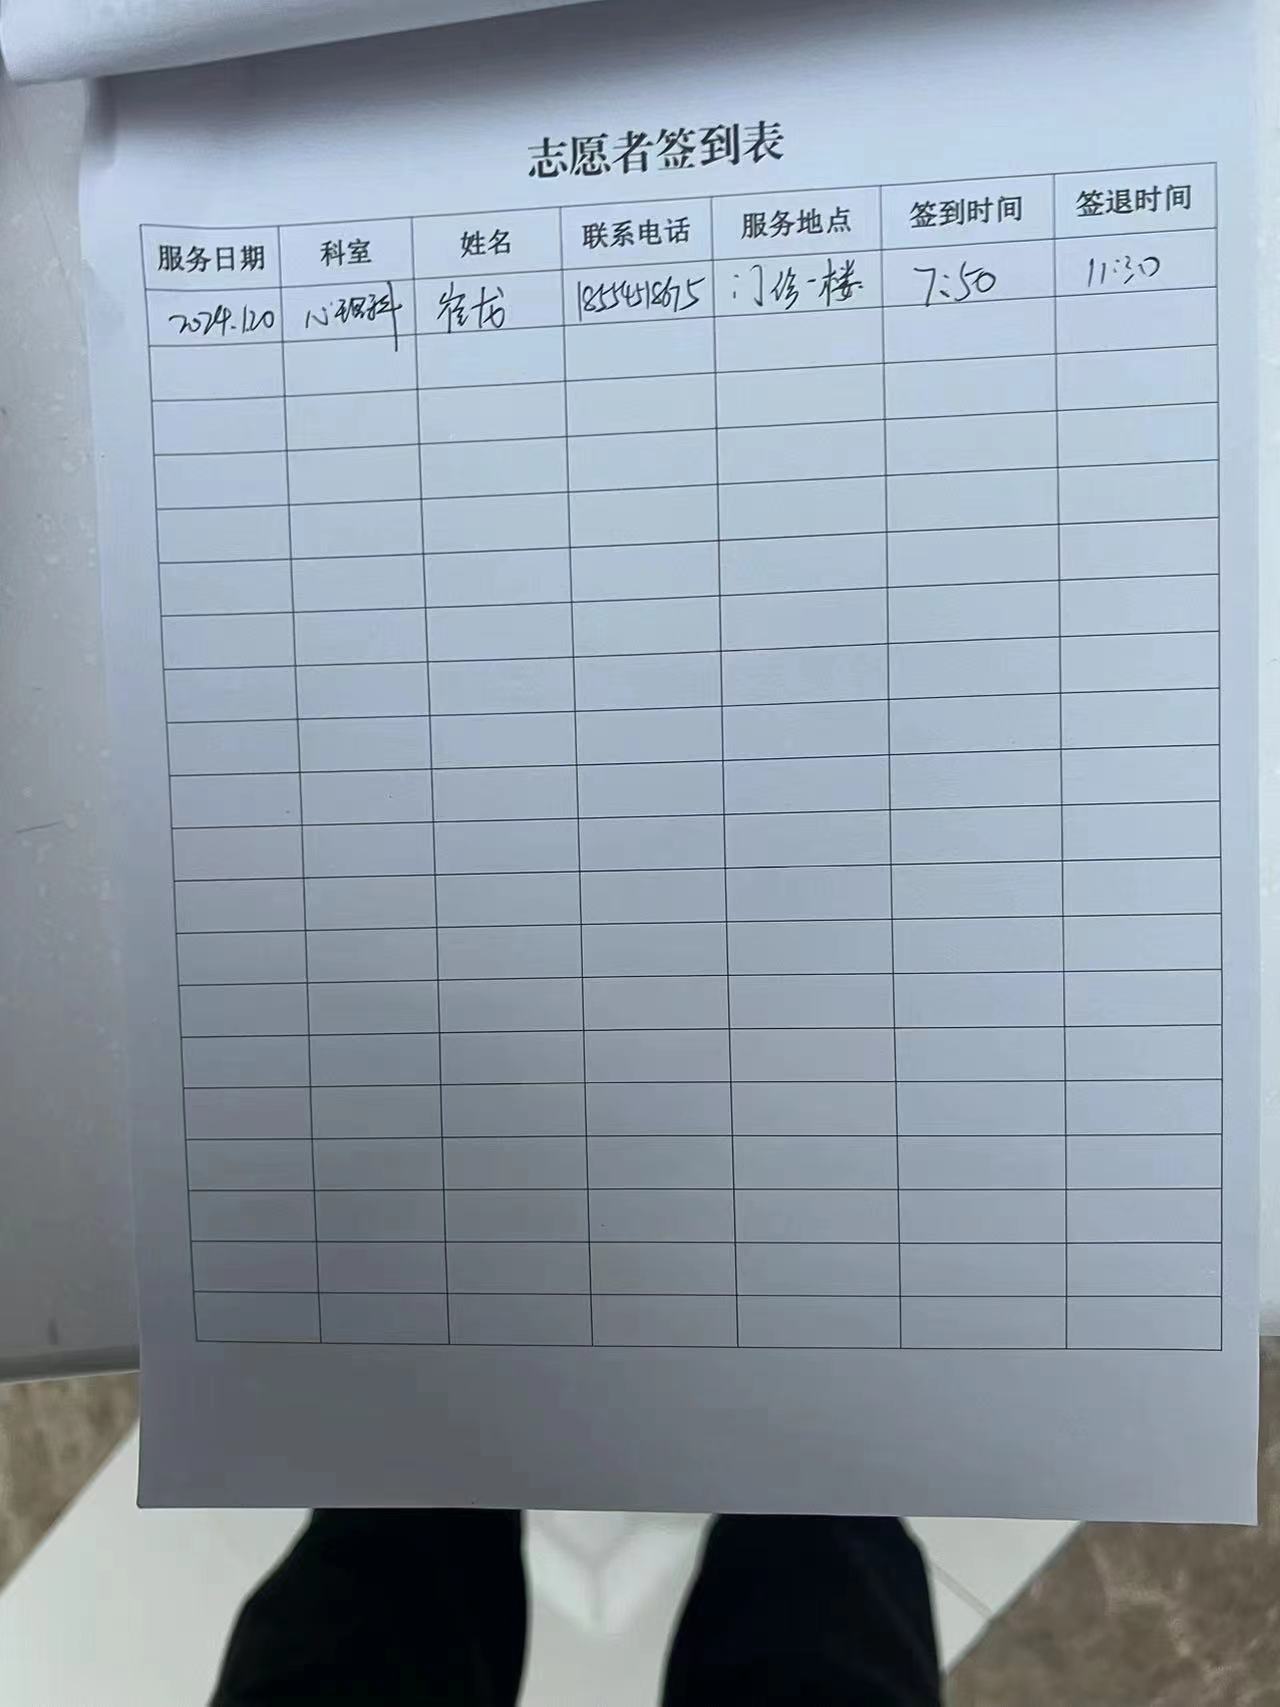 志愿者签到表
服务日期 科室 姓名 联系电话 服务地点 签到时间 签退时间
2024.1.20 心理科 崔龙 18554518675 门诊一楼 7:50 11:30